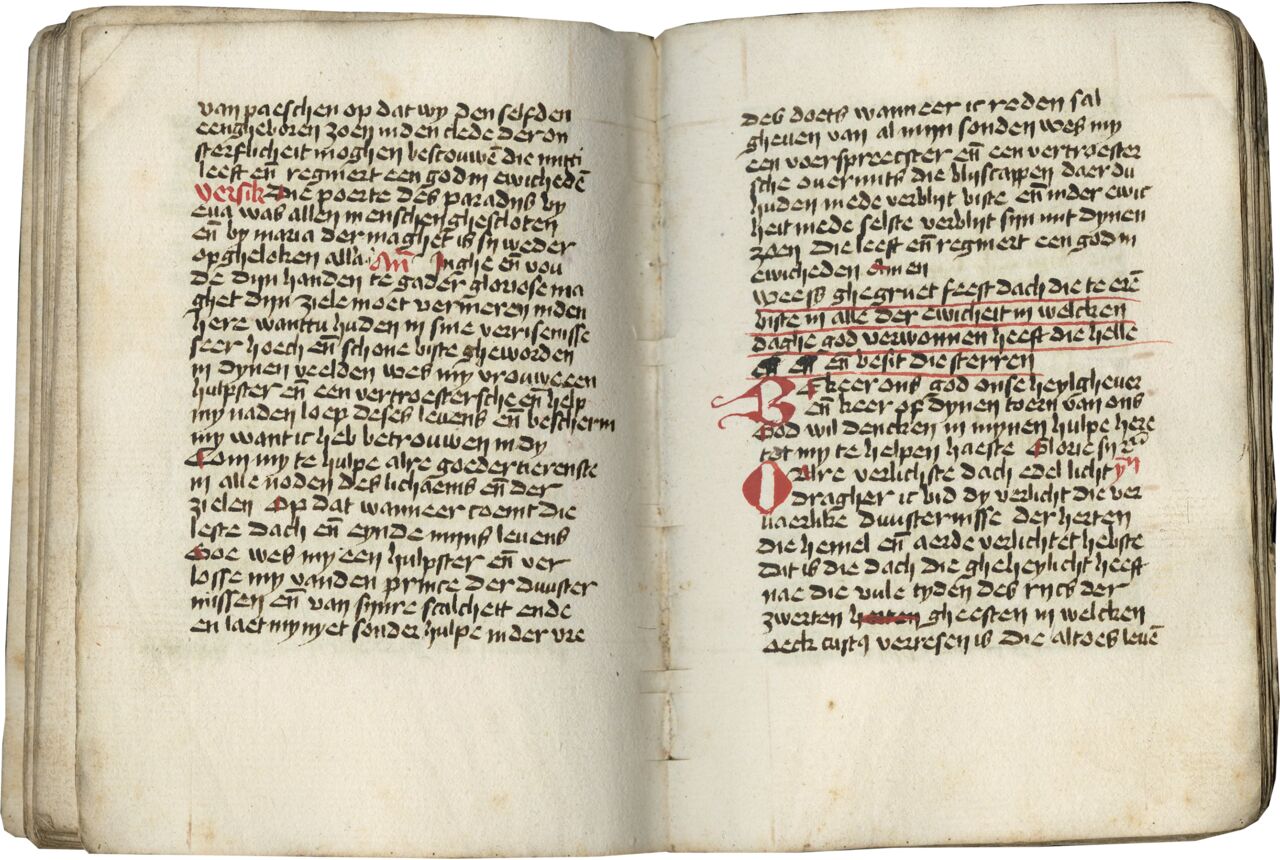 van paeschen op dat wy den selfden
eengheboren zoen in den clede der on
sterflicheit moghen bescouwē die mitti
leeft eñ regniert een god in ewichedē
versik Die poerte des paradijs by
eua was allen menschen ghesloten
eñ by maria der maghet is sy weder
opgheloken alla. Añ Inghe eñ vou
de dijn handen te gader gloriose ma
ghet dijn ziele moet vermeren in den
here wanttu huden in sine verrisenisse
seer hoech eñ schone biste gheworden
in dynen velden wes my vrouwe een
hulpster eñ een vertroestersche eñ help
my naden loep deses leuens eñ bescherm
my want ic heb betrouwen in dy
Com my te hulpe alre goedertierenste
in alle noden des lichaems eñ der
zielen Op dat wanneer coemt die
leste dach eñ eynde mijns leuens
Soe wes my een hulpster eñ ver
losse my vanden prince der duuster
nissen eñ van sijnre scalcheit ende
en laet my nyet sonder hulpe in der vre
des doets wanneer ic reden sal
gheuen van al mijn sonden wes my
een voerspreecster eñ een vertroester
sche ouermits die blijscappen daer du
huden mede verblijt biste eñ in der ewic
heit mede selste verblijt sijn mit dynen
zoen Die leeft eñ regniert een god in
ewicheden Amen
Weess ghegruet feest dach die te erē
biste in alle der ewicheit in welcken
daghe god verwonnen heeft die helle
eñ eñ eñ besit die sterren
Bekeer ons god onse heylgheuer
Eñ keer of dynen toern van ons
God wil dencken in mynen hulpe here
tot my te helpen haeste Glorie sy
O Alre verlichste dach edel licht yñ
dragher ic bid dy verlicht die ver
uaerlike duusternisse der herten
die hemel eñ aerde verlichtet hebste
Dat is die dach die gheheylicht heeft
nae die vule tyden des rijcs der
zwerten herten gheesten in welcken
oeck custq verresen is Die altoes leuē